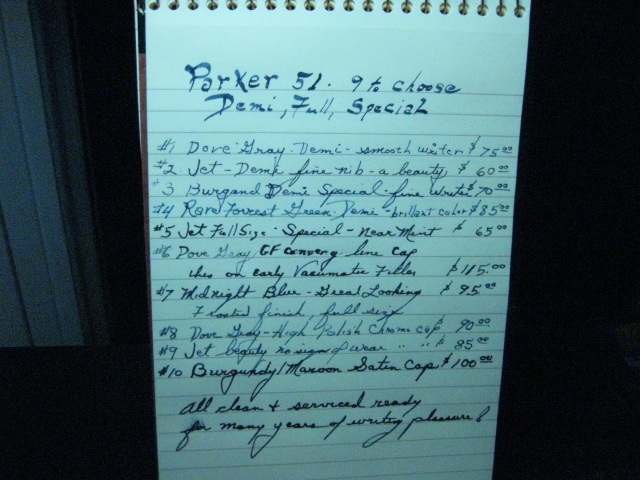 Parker 51. 9 to choose
Demi, Full, Special
#1 Dove Gray - Demi - smooth writer $75.00
#2 Jet - Demi fine nib - a beauty $60.00
#3 Burgand Demi Special - fine writer $70.00
#4 Rare Forrest Green - Demi - brillant color $85.00
#5 Jet Full Size - Special - Near Mint $65.00
#6 Dove Gray GF converg line Cap
this on early Vacumatic Filler $115.00
#7 Midnight Blue - Great Looking $95.00
Frosted finish, full size
#8 Dove Gray - High Polish Chrome Cap $90.00
#9 Jet beauty no sign of wear " " $85.00
#10 Burgundy/Maroon Satin Cap $100.00
All clean + serviced ready
for many years of writing pleasure!